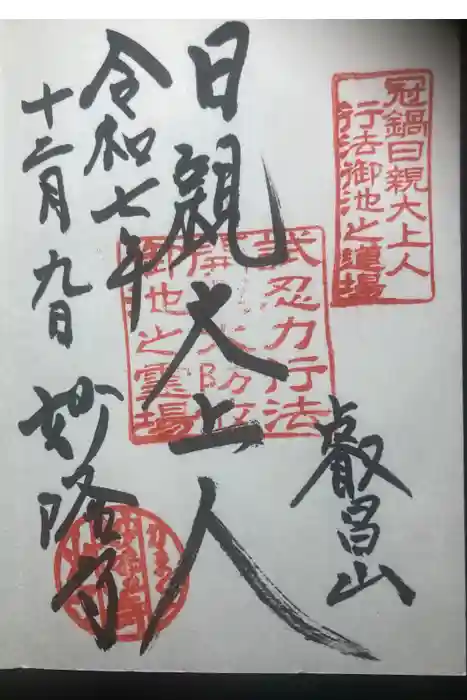 冠鍋日親大上人
行法御池之道場
叡昌山
日親大上人
試忍力行法
御池之霊場
令和七年
十二月九日
妙隆寺